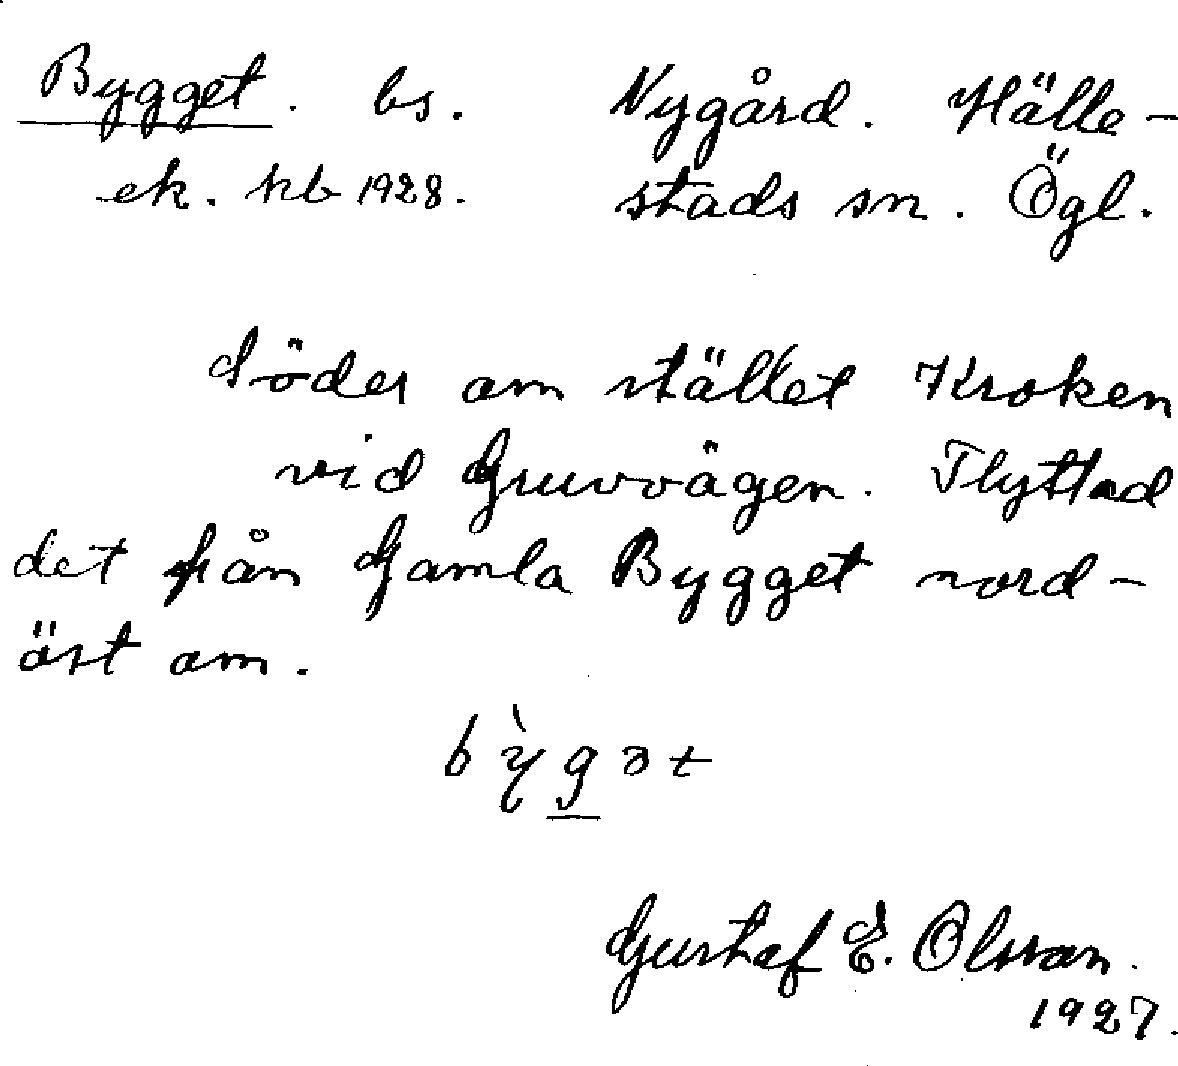 Bygget. bs. Nygård. Hälle-
ek. kb 1928. stads sn. Ögl.
Söder om stället Kroken
vid Gruvvägen. Flyttad
det från Gamla Bygget nord-
öst om.
bỳgət
Gustaf E. Olsson.
1927.